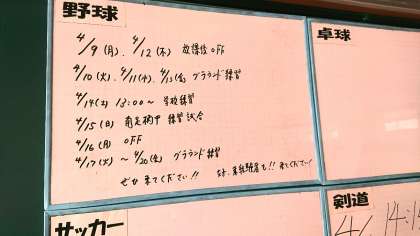 野球
4/9(月)、4/12(木) 放課後 OFF
4/10(火)、4/11(水)、4/13(金) グランド練習
4/14(土) 13:00〜 学校練習
4/15(日) 練習試合
4/16(月) OFF
4/17(火) 〜 4/20(金) グランド練習
ぜひ来てください!! 来てください!
卓球
サッカー
剣道
4/ 14: